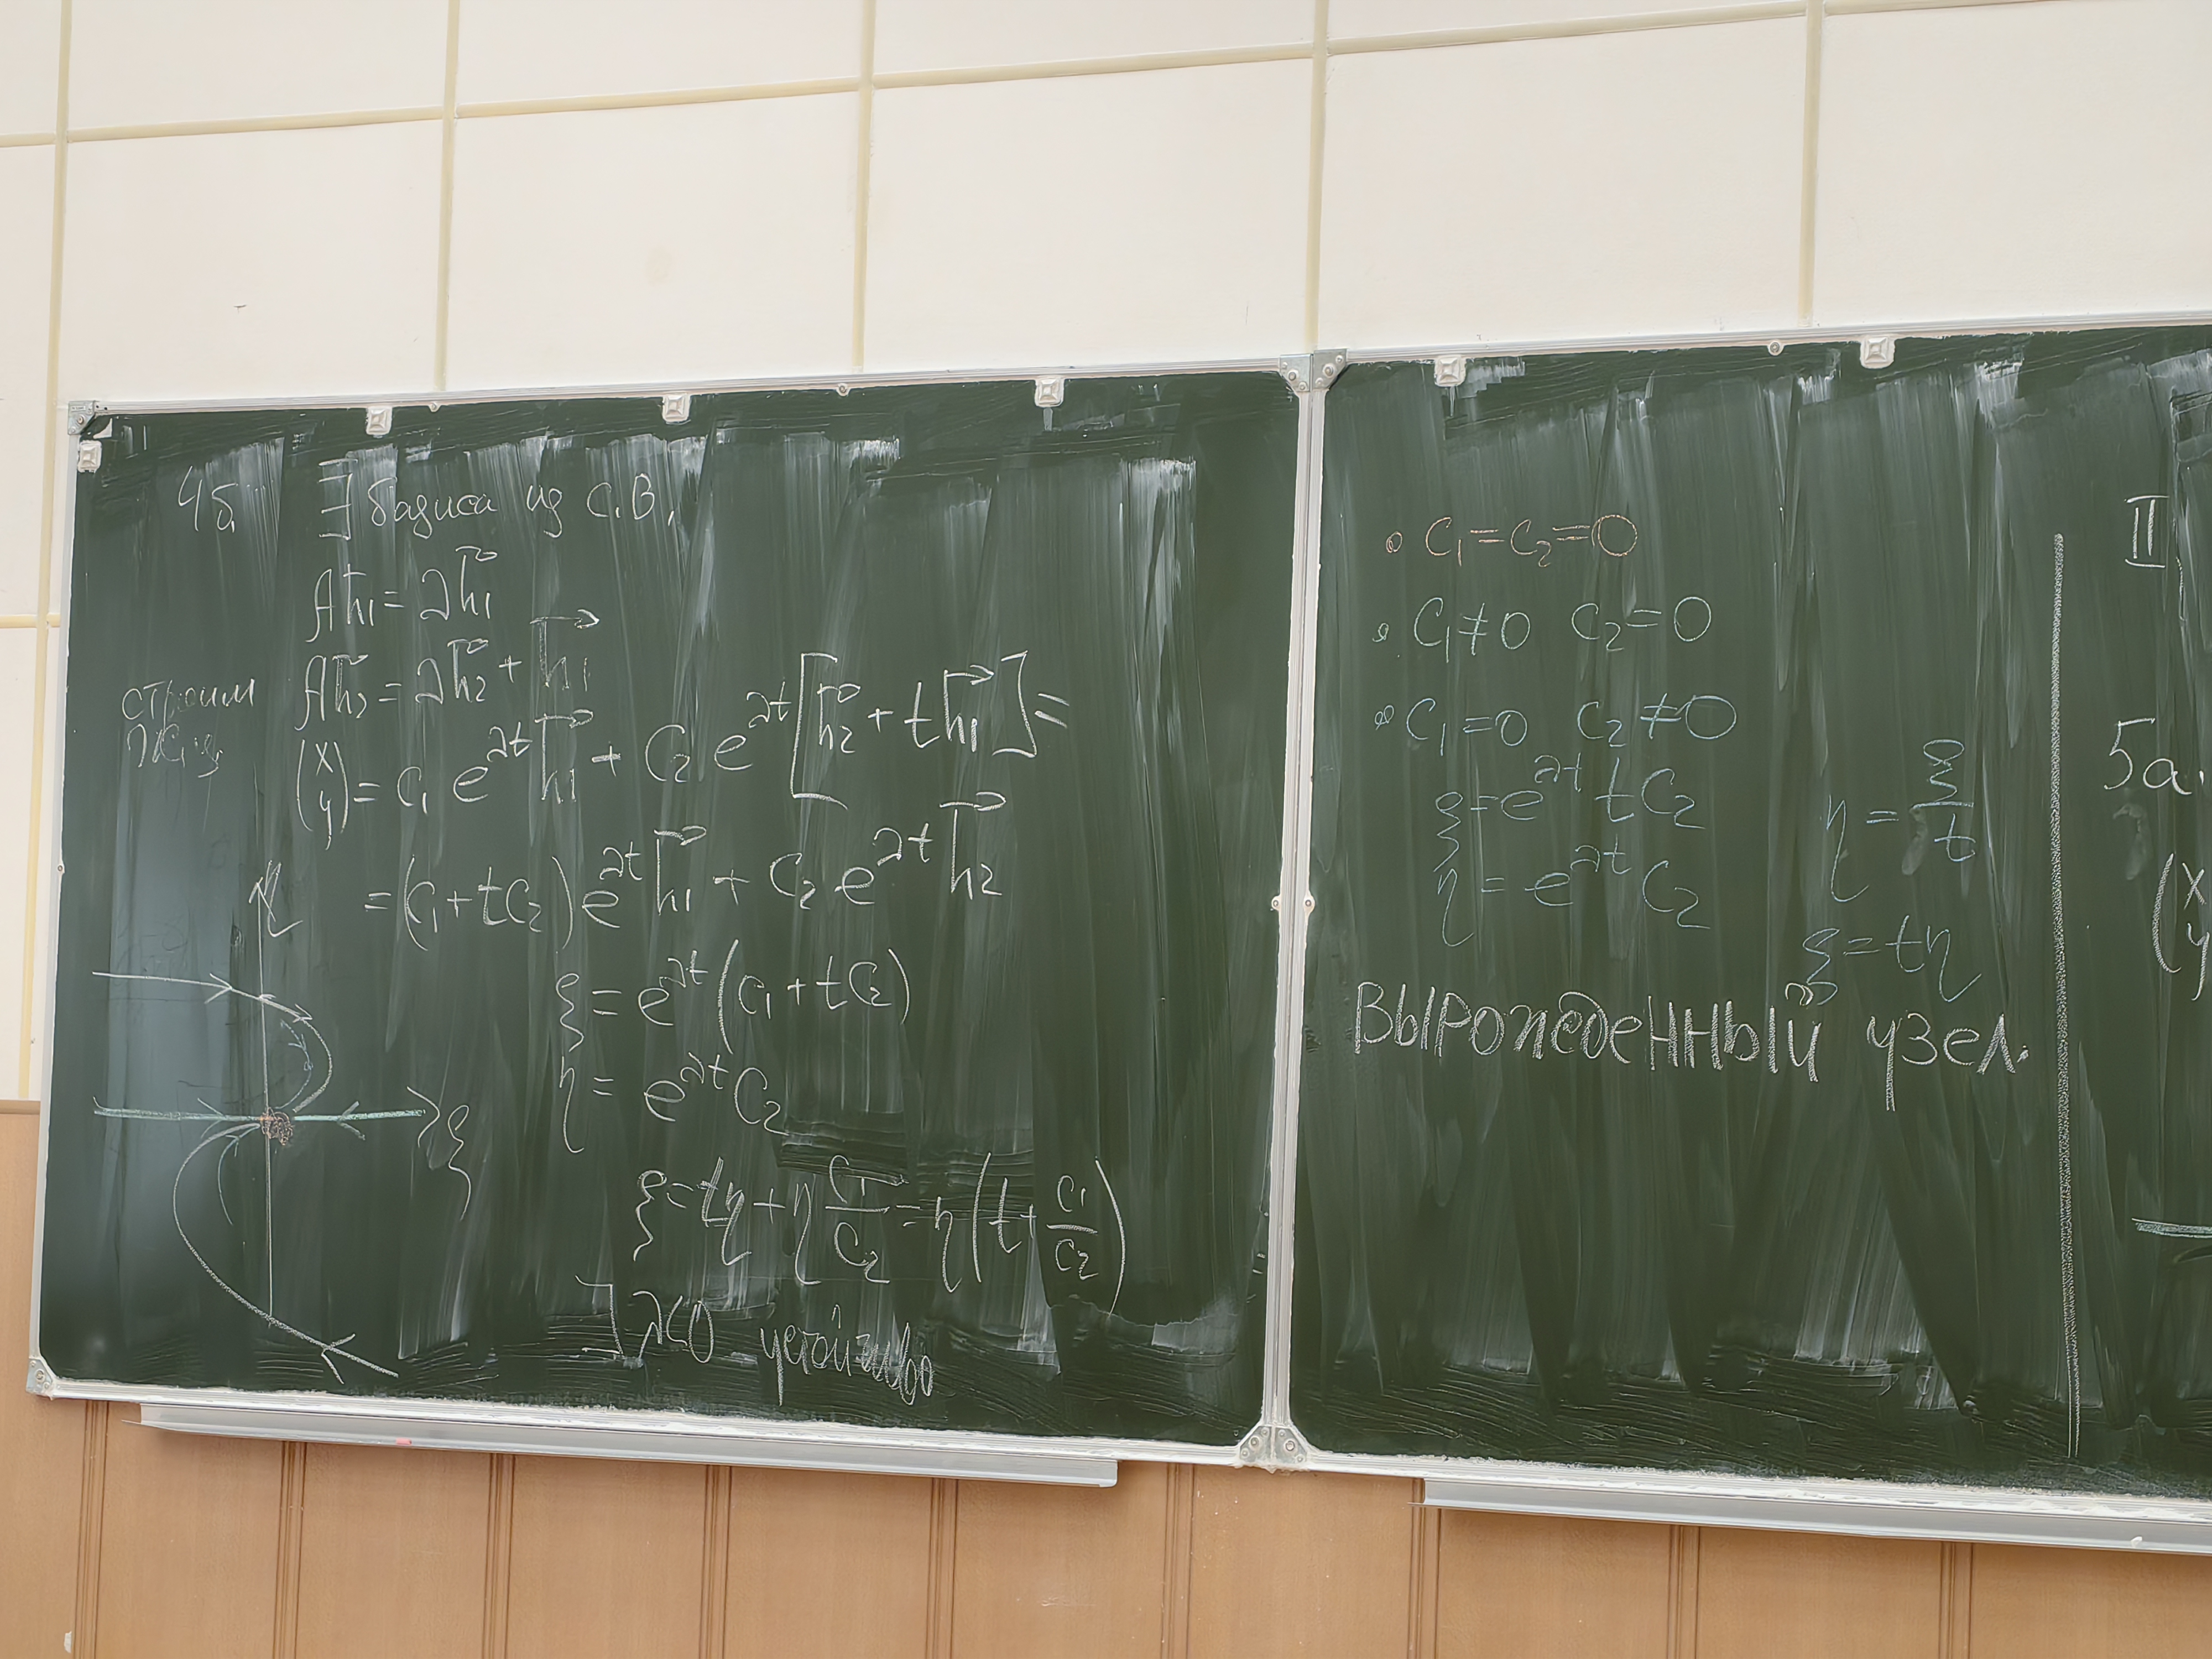 4б. ∃ базиса из С.В.
Ah⃗₁ = λh⃗₁
Ah⃗₂ = λh⃗₂ + h⃗₁
строим
(x y) = c₁ e^{λt} h⃗₁ + c₂ e^{λt} [h⃗₂ + t h⃗₁] =
= (c₁ + tc₂) e^{λt} h⃗₁ + c₂ e^{λt} h⃗₂
η
ξ = e^{λt} (c₁ + tc₂)
η = e^{λt} c₂
ξ
ξ = tη + η c₁/c₂ = η (t + c₁/c₂)
] λ<0 устойчиво
• c₁ = c₂ = 0
• c₁ ≠ 0 c₂ = 0
• c₁ = 0 c₂ ≠ 0
ξ = e^{λt} t c₂
η = e^{λt} c₂
η = ξ/t
ξ = tη
Вырожденный узел.
II
5а.
(x y